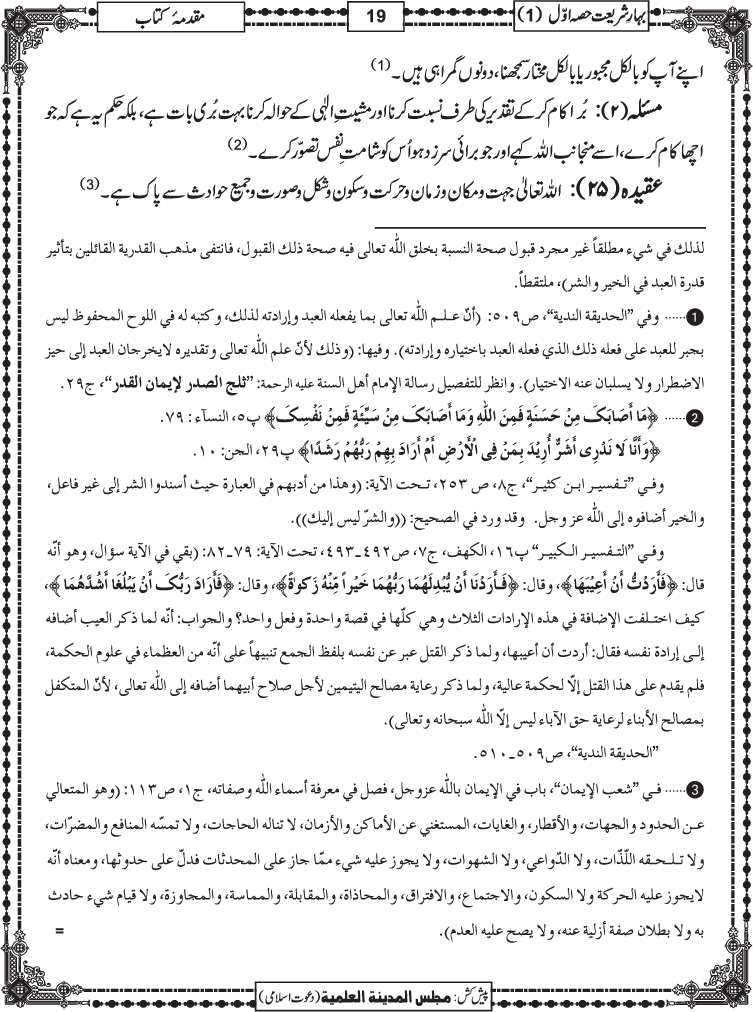 بہارِشریعت حصہ اوّل (1)
19
مقدمۂ کتاب
اپنے آپ کو بالکل مجبور یا بالکل مختار سمجھنا، دونوں گمراہی ہیں۔(1)
مسئلہ (۲): بُرا کام کر کے تقدیر کی طرف نسبت کرنا اور مشیتِ الٰہی کے حوالہ کرنا بہت بُری بات ہے، بلکہ حکم یہ ہے کہ جو
اچھا کام کرے، اسے منجانب اللہ کہے اور جو برائی سرزد ہو اُس کو شامتِ نفس تصوّر کرے۔(2)
عقیدہ (۲۵): اللہ تعالیٰ جہت ومکان وزمان وحرکت وسکون وشکل وصورت وجمیع حوادث سے پاک ہے۔(3)
لذلك في شيء مطلقاً غير مجرد قبول صحة النسبة بخلق الله تعالى فيه صحة ذلك القبول، فانتفى مذهب القدرية القائلين بتأثير
قدرة العبد في الخير والشر)، ملتقطاً.
1...... وفي ”الحديقة الندية“، ص۵۰۹: (أنّ علم الله تعالى بما يفعله العبد وإرادته لذلك، وكتبه له في اللوح المحفوظ ليس
بجبر للعبد على فعله ذلك الذي فعله العبد باختياره وإرادته). وفيها: (وذلك لأنّ علم الله تعالى وتقديره لايخرجان العبد إلى حيز
الاضطرار ولا يسلبان عنه الاختيار). وانظر للتفصيل رسالة الإمام أهل السنة عليه الرحمة: ”ثلج الصدر لإيمان القدر“، ج۲۹.
2...... ﴿مَا أَصَابَكَ مِنْ حَسَنَةٍ فَمِنَ اللّٰهِ وَمَا أَصَابَكَ مِنْ سَيِّئَةٍ فَمِنْ نَفْسِكَ﴾ پ۵، النسآء: ۷۹.
﴿وَأَنَّا لَا نَدْرِى أَشَرٌّ أُرِيْدَ بِمَنْ فِى الْأَرْضِ أَمْ أَرَادَ بِهِمْ رَبُّهُمْ رَشَدًا﴾ پ۲۹، الجن: ۱۰.
وفي ”تفسير ابن كثير“، ج۸، ص ۲۵۳، تحت الآية: (وهذا من أدبهم في العبارة حيث أسندوا الشر إلى غير فاعل،
والخير أضافوه إلى الله عز وجل. وقد ورد في الصحيح: ((والشرّ ليس إليك)).
وفي ”التفسير الكبير“ پ۱۶، الكهف، ج۷، ص۴۹۲-۴۹۳، تحت الآية: ۷۹-۸۲: (بقي في الآية سؤال، وهو أنه
قال: ﴿فَأَرَدْتُّ أَنْ أَعِيْبَهَا﴾، وقال: ﴿فَأَرَدْنَا أَنْ يُّبْدِلَهُمَا رَبُّهُمَا خَيْراً مِّنْهُ زَكوٰةً﴾، وقال: ﴿فَأَرَادَ رَبُّكَ أَنْ يَبْلُغَا أَشُدَّهُمَا﴾،
كيف اختلفت الإضافة في هذه الإرادات الثلاث وهي كلّها في قصة واحدة وفعل واحد؟ والجواب: أنّه لما ذكر العيب أضافه
إلى إرادة نفسه فقال: أردت أن أعيبها، ولما ذكر القتل عبر عن نفسه بلفظ الجمع تنبيهاً على أنّه من العظماء في علوم الحكمة،
فلم يقدم على هذا القتل إلّا لحكمة عالية، ولما ذكر رعاية مصالح اليتيمين لأجل صلاح أبيهما أضافه إلى الله تعالى، لأنّ المتكفل
بمصالح الأبناء لرعاية حق الآباء ليس إلّا الله سبحانه وتعالى).
”الحديقة الندية“، ص۵۰۹-۵۱۰.
3...... في ”شعب الإيمان“، باب في الإيمان بالله عزوجل، فصل في معرفة أسماء الله وصفاته، ج۱، ص۱۱۳: (وهو المتعالي
عن الحدود والجهات، والأقطار، والغايات، المستغني عن الأماكن والأزمان، لا تناله الحاجات، ولا تمسّه المنافع والمضرّات،
ولا تلحقه اللّذّات، ولا الدّواعي، ولا الشهوات، ولا يجوز عليه شيء ممّا جاز على المحدثات فدلّ على حدوثها، ومعناه أنّه
لايجوز عليه الحركة ولا السكون، والاجتماع، والافتراق، والمحاذاة، والمقابلة، والمماسة، والمجاوزة، ولا قيام شيء حادث
به ولا بطلان صفة أزلية عنه، ولا يصح عليه العدم). =
پیش کش: مجلس المدينة العلمية (دعوتِ اسلامی)